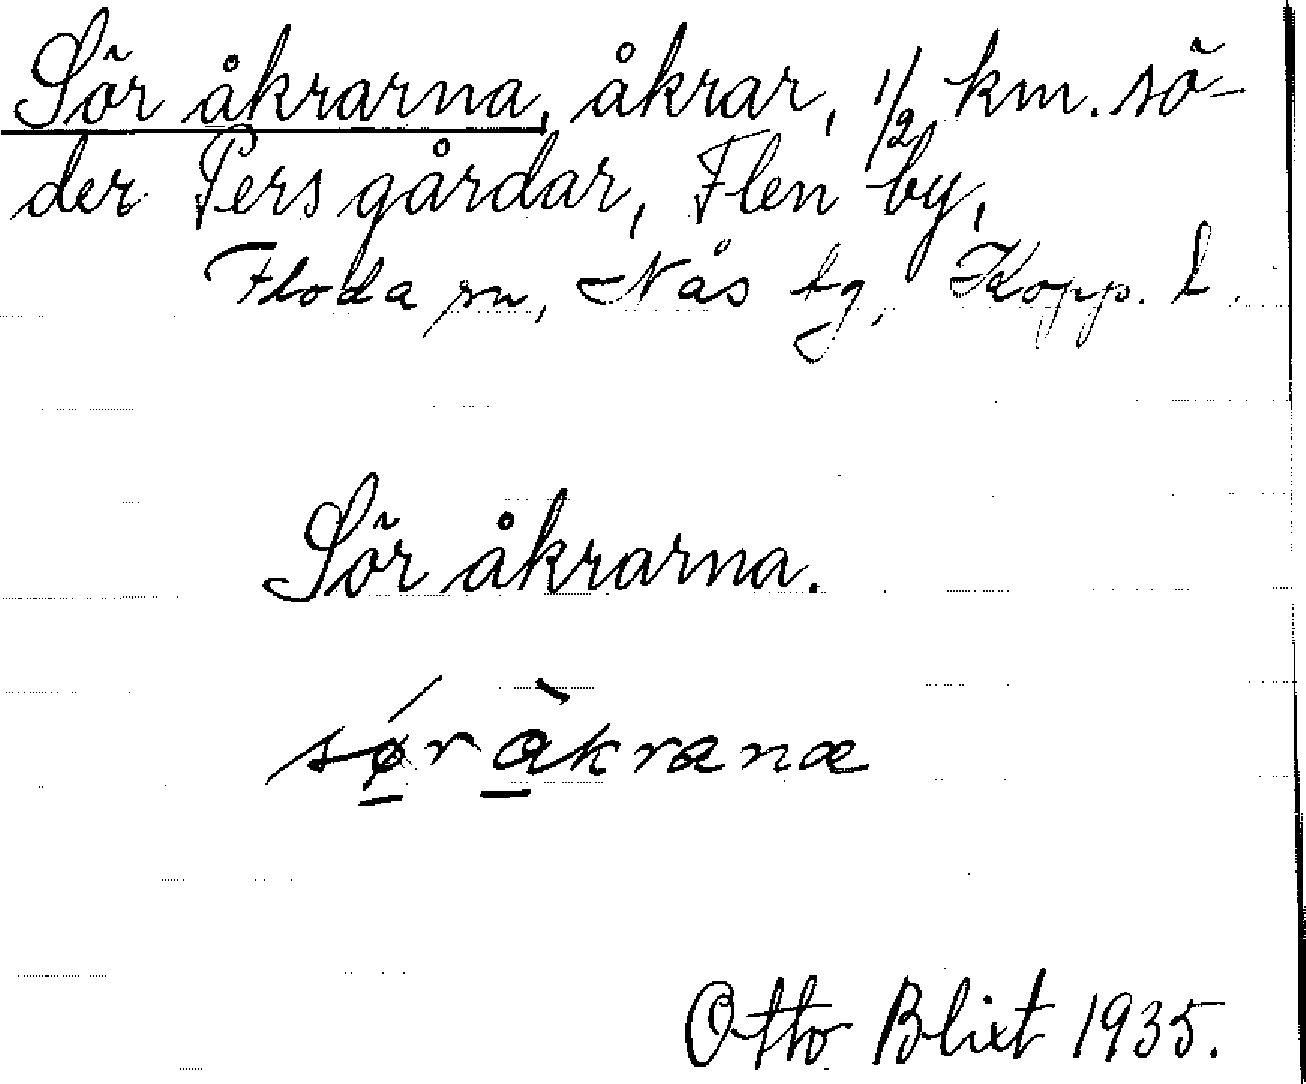 Sör åkrarna, åkrar, 1/2 km. sö-
der Pers gårdar, Flen by,
Floda sn, Nås tg, Kopp. l.
Sör åkrarna.
sǿ̱r å̱̀krænæ
Otto Blixt 1935.